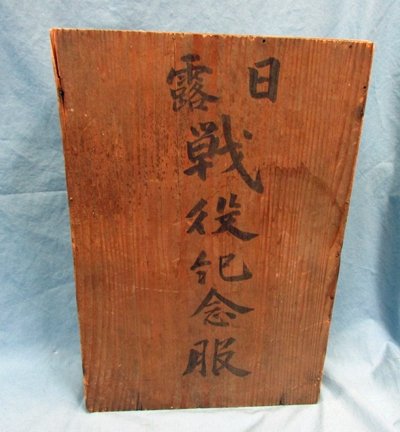 日露
戦役紀念服